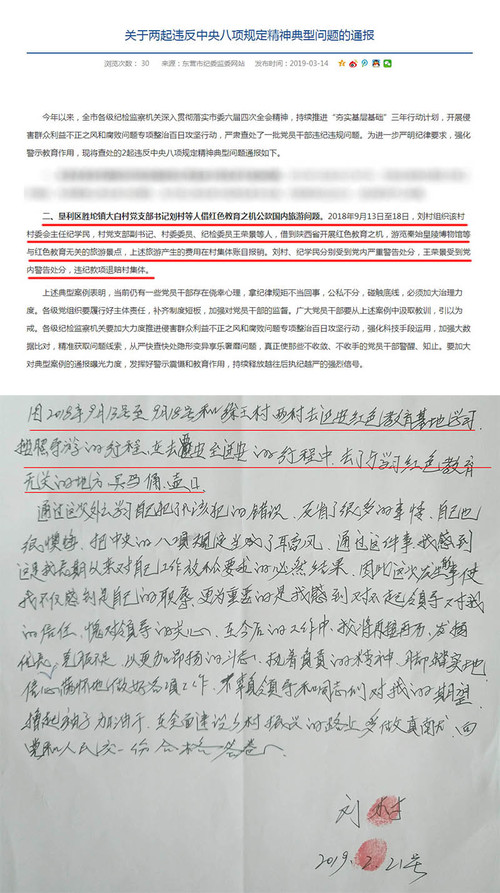 关于两起违反中央八项规定精神典型问题的通报
浏览次数： 30 来源：东营市纪委监委网站 发布时间：2019-03-14
今年以来，全市各级纪检监察机关深入贯彻落实市委六届四次全会精神，持续推进“夯实基层基础”三年行动计划，开展侵
害群众利益不正之风和腐败问题专项整治百日攻坚行动，严肃查处了一批党员干部违纪违规问题。为进一步严明纪律要求，强化
警示教育作用，现将查处的2起违反中央八项规定精神典型问题通报如下。
二、垦利区胜坨镇大白村党支部书记刘村等人借红色教育之机公款国内旅游问题。2018年9月13日至18日，刘村组织该村
村委会主任纪学民，村党支部副书记、村委委员、纪检委员王荣景等人，借到陕西省开展红色教育之机，游览秦始皇陵博物馆等
与红色教育无关的旅游景点，上述旅游产生的费用在村集体账目报销。刘村、纪学民分别受到党内严重警告处分，王荣景受到党
内警告处分，违纪款项退赔村集体。
上述典型案例表明，当前仍有一些党员干部存在侥幸心理，拿纪律规矩不当回事，公私不分，碰触底线，必须加大治理力
度。各级党组织要履行好主体责任，补齐制度短板，加强对党员干部的监督。广大党员干部要从上述案例中汲取教训，引以为
戒。各级纪检监察机关要加大力度推进侵害群众利益不正之风和腐败问题专项整治百日攻坚行动，强化科技手段运用，加强大
数据比对，精准获取问题线索，从严快查快处隐形变异享乐奢靡问题，真正使那些不收敛、不收手的党员干部警醒、知止。要加大
对典型案例的通报曝光力度，发挥好警示震慑和教育作用，持续释放越往后执纪越严的强烈信号。
因2018年9月13号至9月18号和徐王村 西村去延安红色教育基地学习.
按照导游的行程，在去西安至延安的行程中，去了与学习红色教育
无关的地方 兵马俑、壶口.
通过这次外出学习自己犯了不该犯的错误，反省了很多的事情，自己也
很懊悔，把中央的八项规定当成了耳旁风，通过这件事，我感到
这是我长期以来对自己工作放松要求的必然结果，因此这次发生事使
我不仅感到是自己的耻辱，更为重要的是我感到对不起领导对我
的信任，愧对领导的关心，在今后的工作中，我将 发扬
优点，克服不足，以更加昂扬的斗志，执着负责的精神，脚踏实地
信心满怀地做好各项工作，不辜负领导和同志们对我的期望.
撸起袖子加油干，在全面建设乡村振兴的路上多做贡献，向
党和人民交一份合格答卷.
刘村
2019.2.21号